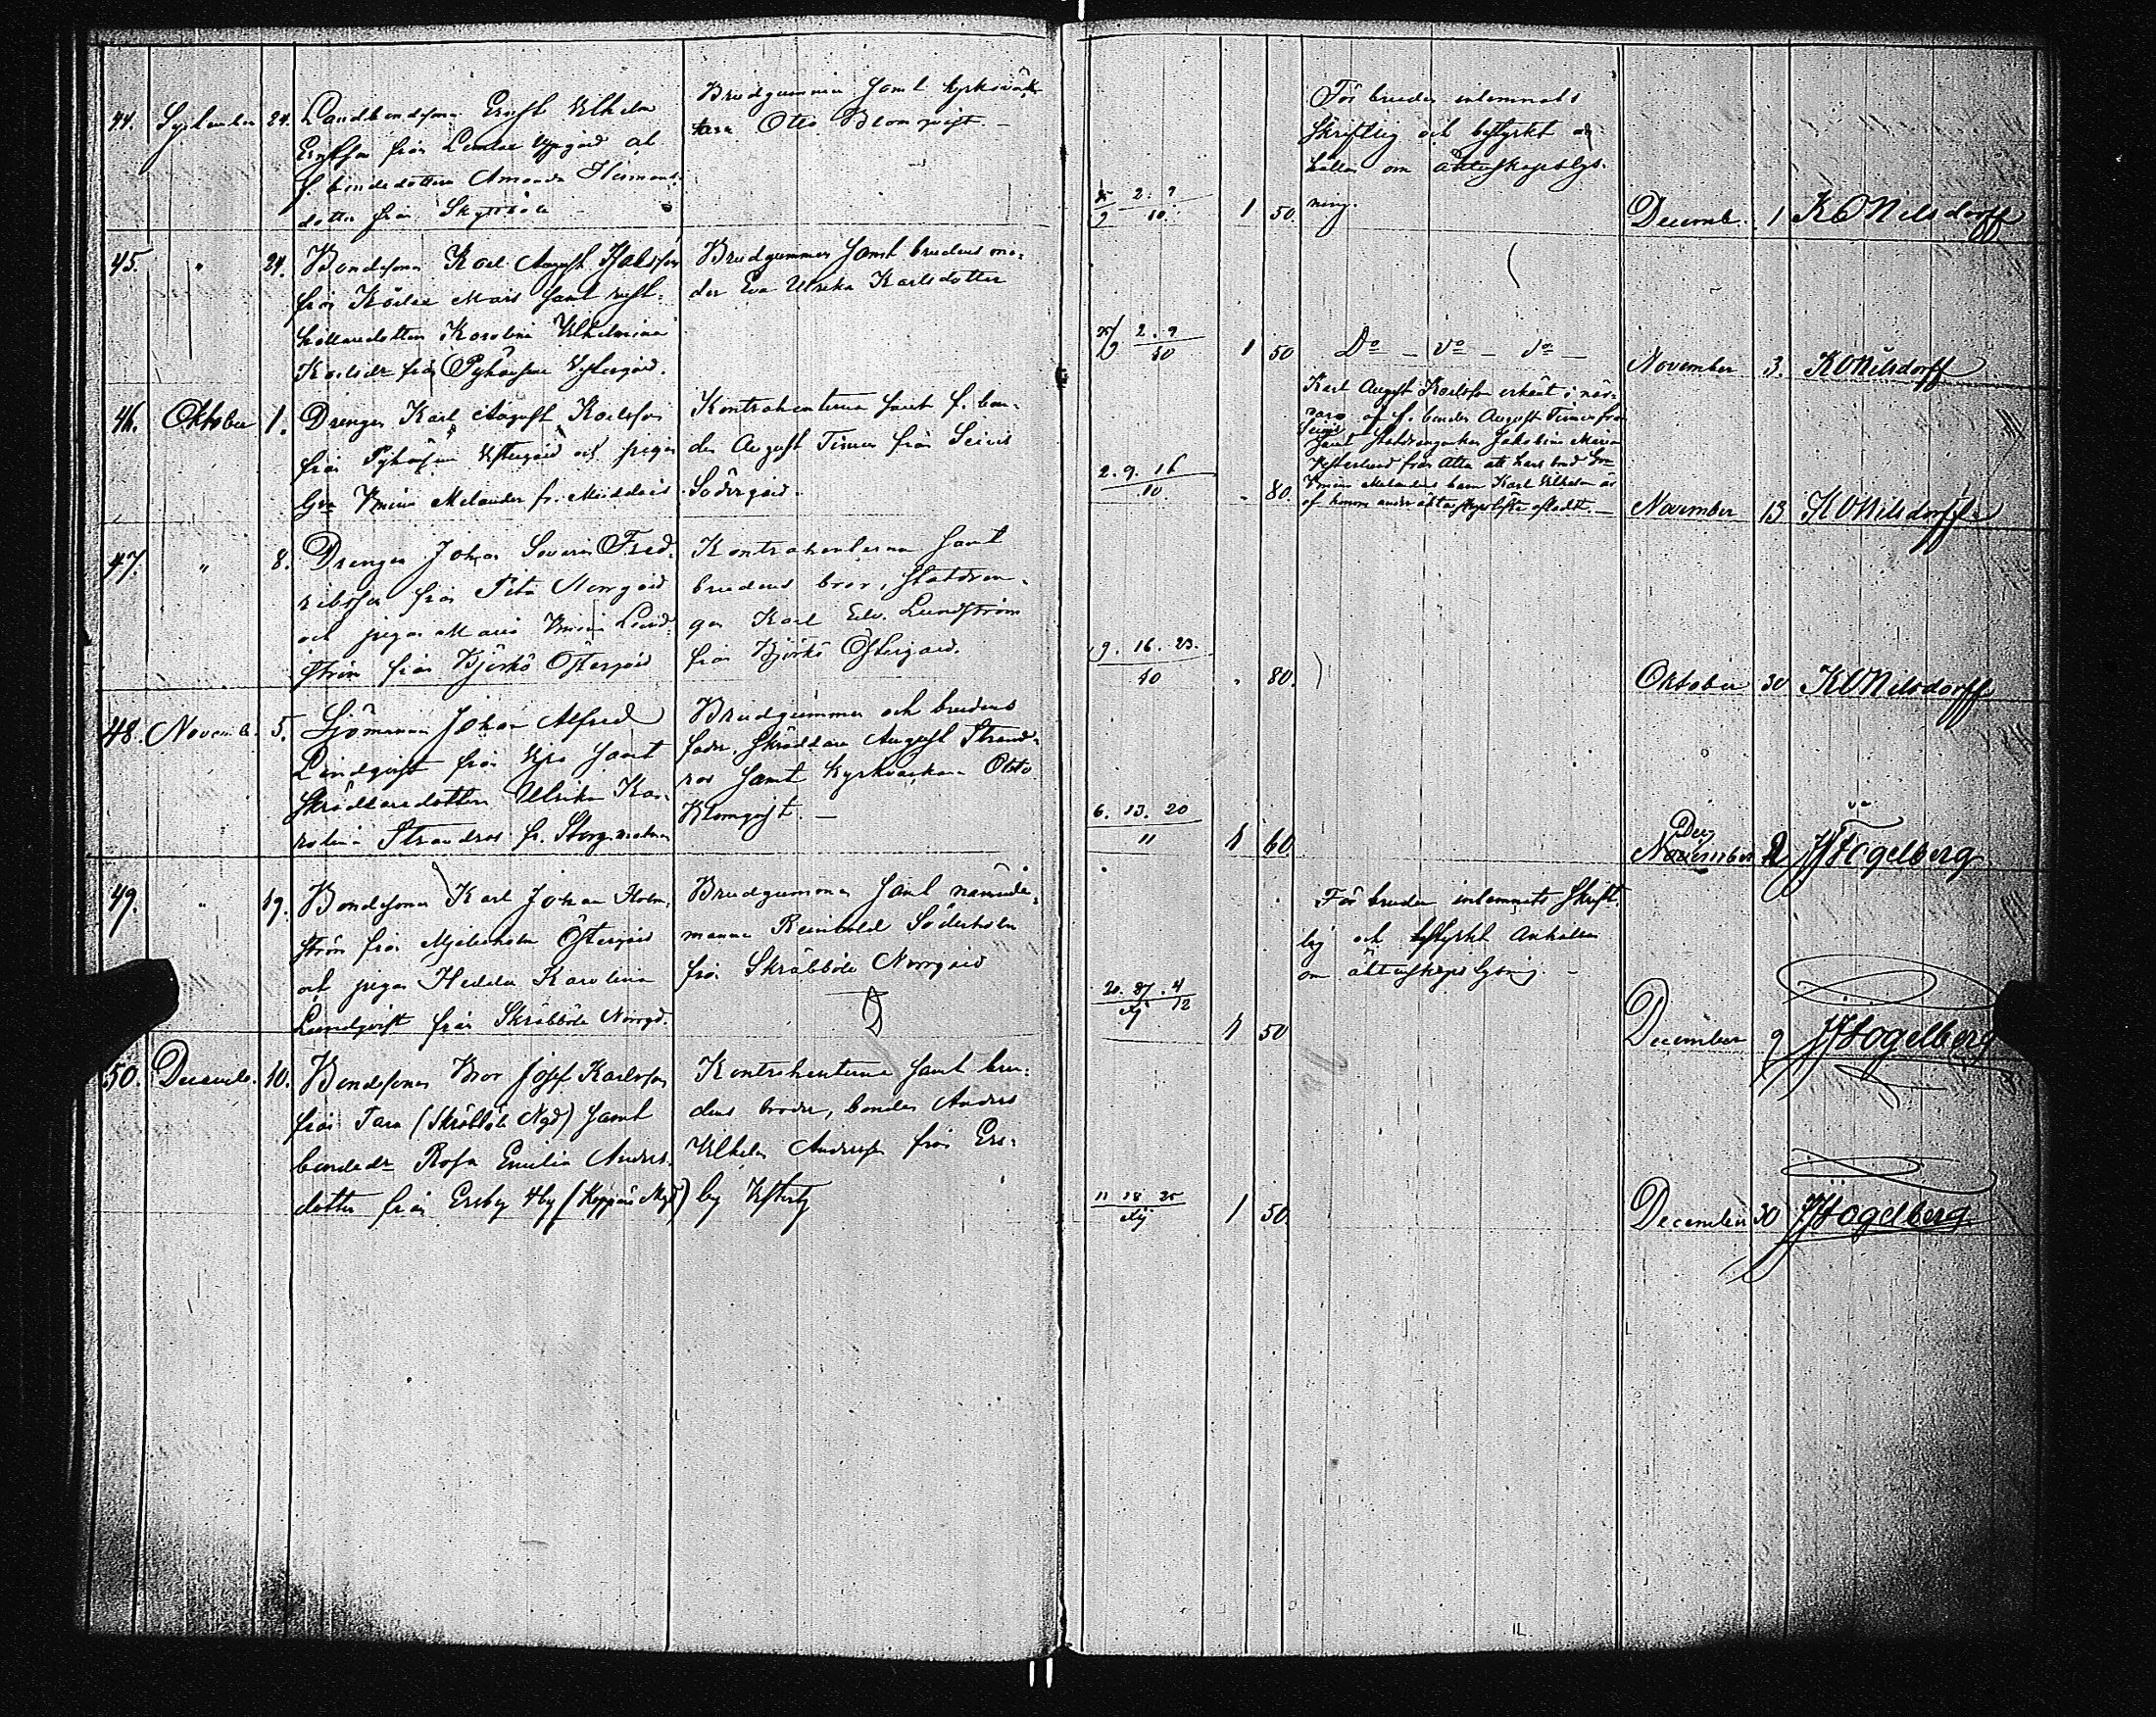 44. September 24. Landbondesonen Ernst Vilhelm
Ernstson från Lemlax Uppgård och
f. bondedottern Amanda Hermans-
dotter från Skyttböle
Brudgummen samt kyrkoväk-
taren Otto Blomqvist. –
25/9 2. 9/10. 1 50.
För bruden inlemnats
skriftlig och bestyrkt an-
hållan om äktenskapslys-
ning.
Decemb. 1 K O Nilsdorff
45. " 24. Bondesonen Karl August
från Mars samt rust-
hållaredottern Karolina Vilhelmina
Karlsdr från Pyhänsuu Vestergård.
Brudgummen samt brudens mo-
der Eva Ulrika Karlsdotter
25/9 2. 9/10 1 50
Do – do – do –
November 3. K O Nilsdorff
46. Oktober 1. Drengen Karl August Karlsson
från Vestergård och pigan
Melander fr. Middais
Kontrahenterna samt f. bon-
den August Timen från
Södergård.
2. 9. 16/10. " 80.
Karl August Karlsson erkänt i när-
varo af f. bonden August Timen från
samt Jakobina Maria
Vesterlund från Attu att hans brud
Melanders barn Karl Vilhelm är
af honom under äktenskapslöfte afladt. –
November 13 K O Nilsdorff
47. " 8. Drengen Johan Severin Fred-
riksson från Norrgård
och pigan Maria Lund-
ström från Björkö Östergård
Kontrahenterna samt
brudens bror, statdren-
gen Karl Edv. Lundström
från Björkö Östergård.
9. 16. 23./10 " 80.
Oktober 30 K O Nilsdorff
48. Novemb. 5. Sjömannen Johan Alfred
Lindqvist från samt
Skräddaredottern Ulrika Ka-
rolina Strandros fr.
Brudgummen och brudens
fader, skräddare August Strand-
ros samt kyrkväktaren Otto
Blomqvist. –
6. 13. 20/11 1 60.
Dec
November 2 Fogelberg
49. " 19. Bondesonen Karl Johan Holm-
ström från Mjelisholm Östergård
och pigan Hedda Karolina
Lundqvist från Skräbböle Norrgd.
Brudgummen samt nämnde-
mannen Reinhold Söderholm
från Skräbböle Norrgård
20. 27. 4/12 1 50
För bruden inlemnats skrift-
lig och bestyrkt anhållan
om äktenskapslysning. –
December 9 Fogelberg
50. Decemb. 10. Bondesonen Bror Josef Karlsson
från Tara (Skräbböle Ngd) samt
bondedr Rosa Emilia Anders-
dotter från Ersby
Kontrahenterna samt bru-
dens broder, bonden Anders
Vilhelm Andersson från Ers-
by Vesterby
11 18 25/xii 1 50.
December 30 Fogelberg